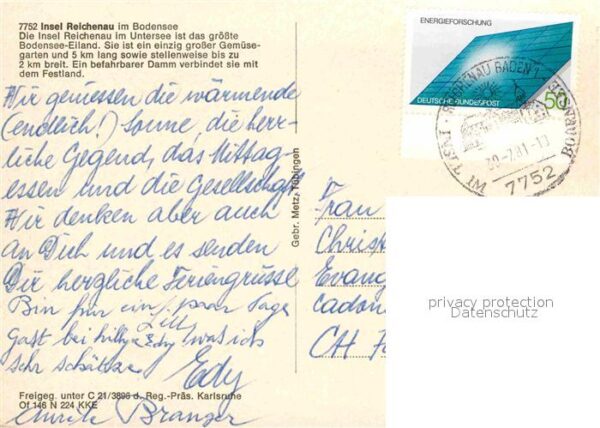 7752 Insel Reichenau im Bodensee
Die Insel Reichenau im Untersee ist das größte
Bodensee-Eiland. Sie ist ein einzig großer Gemüse-
garten und 5 km lang sowie stellenweise bis zu
2 km breit. Ein befahrbarer Damm verbindet sie mit
dem Festland.
Wir geniessen die wärmende
(endlich!) Sonne, die herr-
liche Gegend, das Mittag-
essen und die Gesellschaft.
Wir denken aber auch
an Dich und es senden
Dir herzliche Feriengrüsse
Bin für ein paar Tage
Gast bei Lilly & Edy was ich
sehr schätze.
Edy
Branger
Freigeg. unter C 21/3896 d. Reg.-Präs. Karlsruhe
Of 146 N 224 KKE
Gebr. Metz, Tübingen
ENERGIEFORSCHUNG
DEUTSCHE BUNDESPOST
50
REICHENAU BADEN 1
30.-7.81.-13
7752
Frau
Christ
Evang
CH
privacy protection
Datenschutz